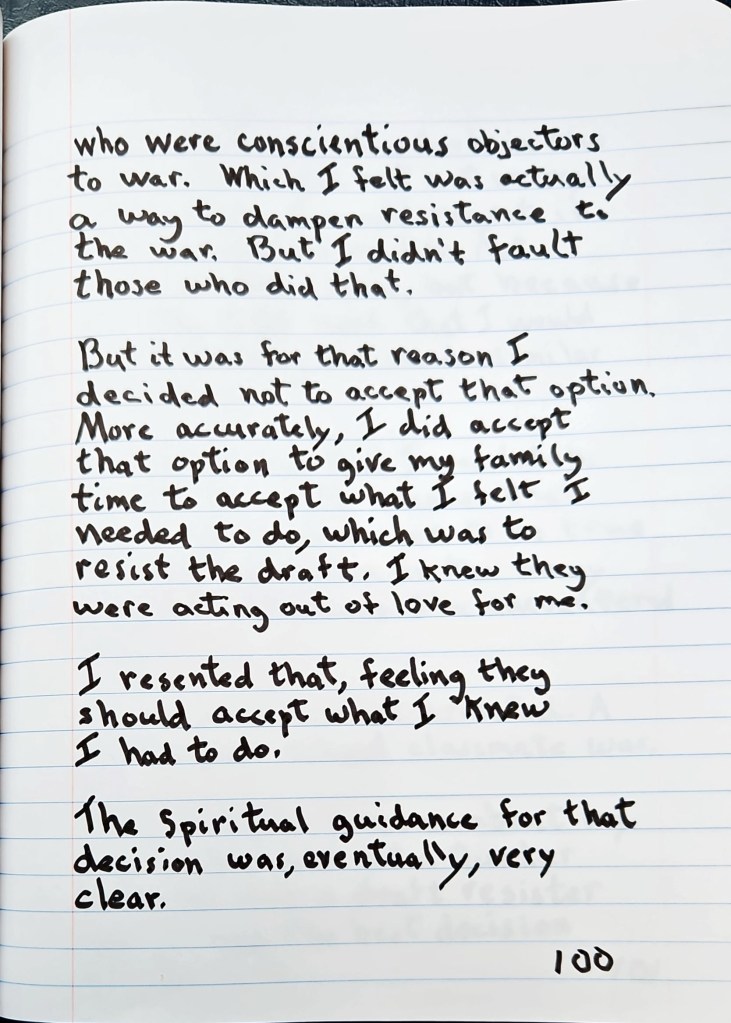 who were conscientious objectors
to war. Which I felt was actually
a way to dampen resistance to
the war. But I didn't fault
those who did that.
But it was for that reason I
decided not to accept that option.
More accurately, I did accept
that option to give my family
time to accept what I felt I
needed to do, which was to
resist the draft. I knew they
were acting out of love for me.
I resented that, feeling they
should accept what I knew
I had to do.
The Spiritual guidance for that
decision was, eventually, very
clear.
100